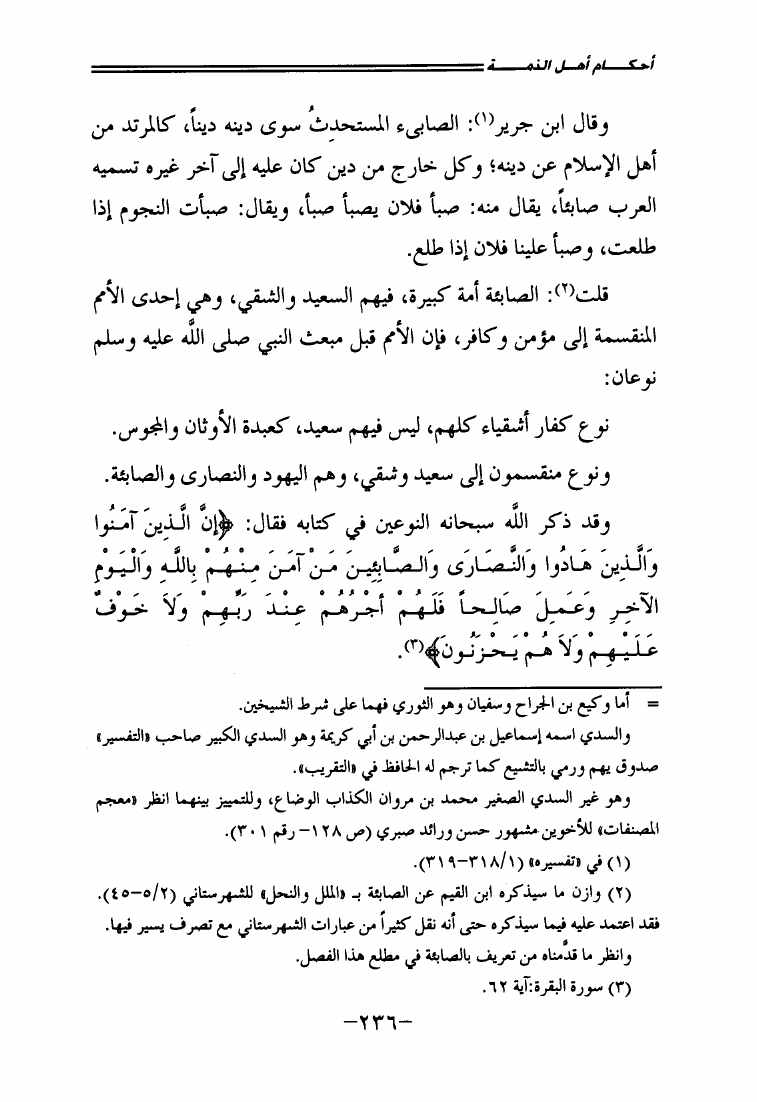 أحكـــام أهـل الذمـــة
وقال ابن جرير(١): الصابىء المستحدثُ سوى دينه ديناً، كالمرتد من
أهل الإسلام عن دينه؛ وكل خارج من دين كان عليه إلى آخر غيره تسميه
العرب صابئاً، يقال منه: صبأ فلان يصبأ صبأ، ويقال: صبأت النجوم إذا
طلعت، وصبأ علينا فلان إذا طلع.
قلت(٢): الصابئة أمة كبيرة، فيهم السعيد والشقي، وهي إحدى الأمم
المنقسمة إلى مؤمن وكافر، فإن الأمم قبل مبعث النبي صلى اللّه عليه وسلم
نوعان:
نوع كفار أشقياء كلهم، ليس فيهم سعيد، كعبدة الأوثان والمجوس.
ونوع منقسمون إلى سعيد وشقي، وهم اليهود والنصارى والصابئة.
وقد ذكر اللّه سبحانه النوعين في كتابه فقال: ﴿إنَّ الَّذِينَ آمَنُوا
وَالَّذِينَ هَادُوا وَالنَّصَارَى وَالصَّابِئِينَ مَنْ آمَنَ مِنْهُمْ بِاللَّهِ وَالْيَوْمِ
الآخِرِ وَعَمِلَ صَالِحاً فَلَهُمْ أَجْرُهُمْ عِنْدَ رَبِّهِمْ وَلاَ خَوْفٌ
عَلَيْهِمْ وَلاَ هُمْ يَحْزَنُونَ﴾(٣).
= أما وكيع بن الجراح وسفيان وهو الثوري فهما على شرط الشيخين.
والسدي اسمه إسماعيل بن عبدالرحمن بن أبي كريمة وهو السدي الكبير صاحب «التفسير»
صدوق يهم ورمي بالتشيع كما ترجم له الحافظ في «التقريب».
وهو غير السدي الصغير محمد بن مروان الكذاب الوضاع، وللتمييز بينهما انظر «معجم
المصنفات» للأخوين مشهور حسن ورائد صبري (ص ١٢٨– رقم ٣٠١).
(١) في «تفسيره» (٣١٨/١–٣١٩).
(٢) وازن ما سيذكره ابن القيم عن الصابئة بـ «الملل والنحل» للشهرستاني (٥/٢–٤٥).
فقد اعتمد عليه فيما سيذكره حتى أنه نقل كثيراً من عبارات الشهرستاني مع تصرف يسير فيها.
وانظر ما قدَّمناه من تعريف بالصابئة في مطلع هذا الفصل.
(٣) سورة البقرة:آية ٦٢.
–٢٣٦–